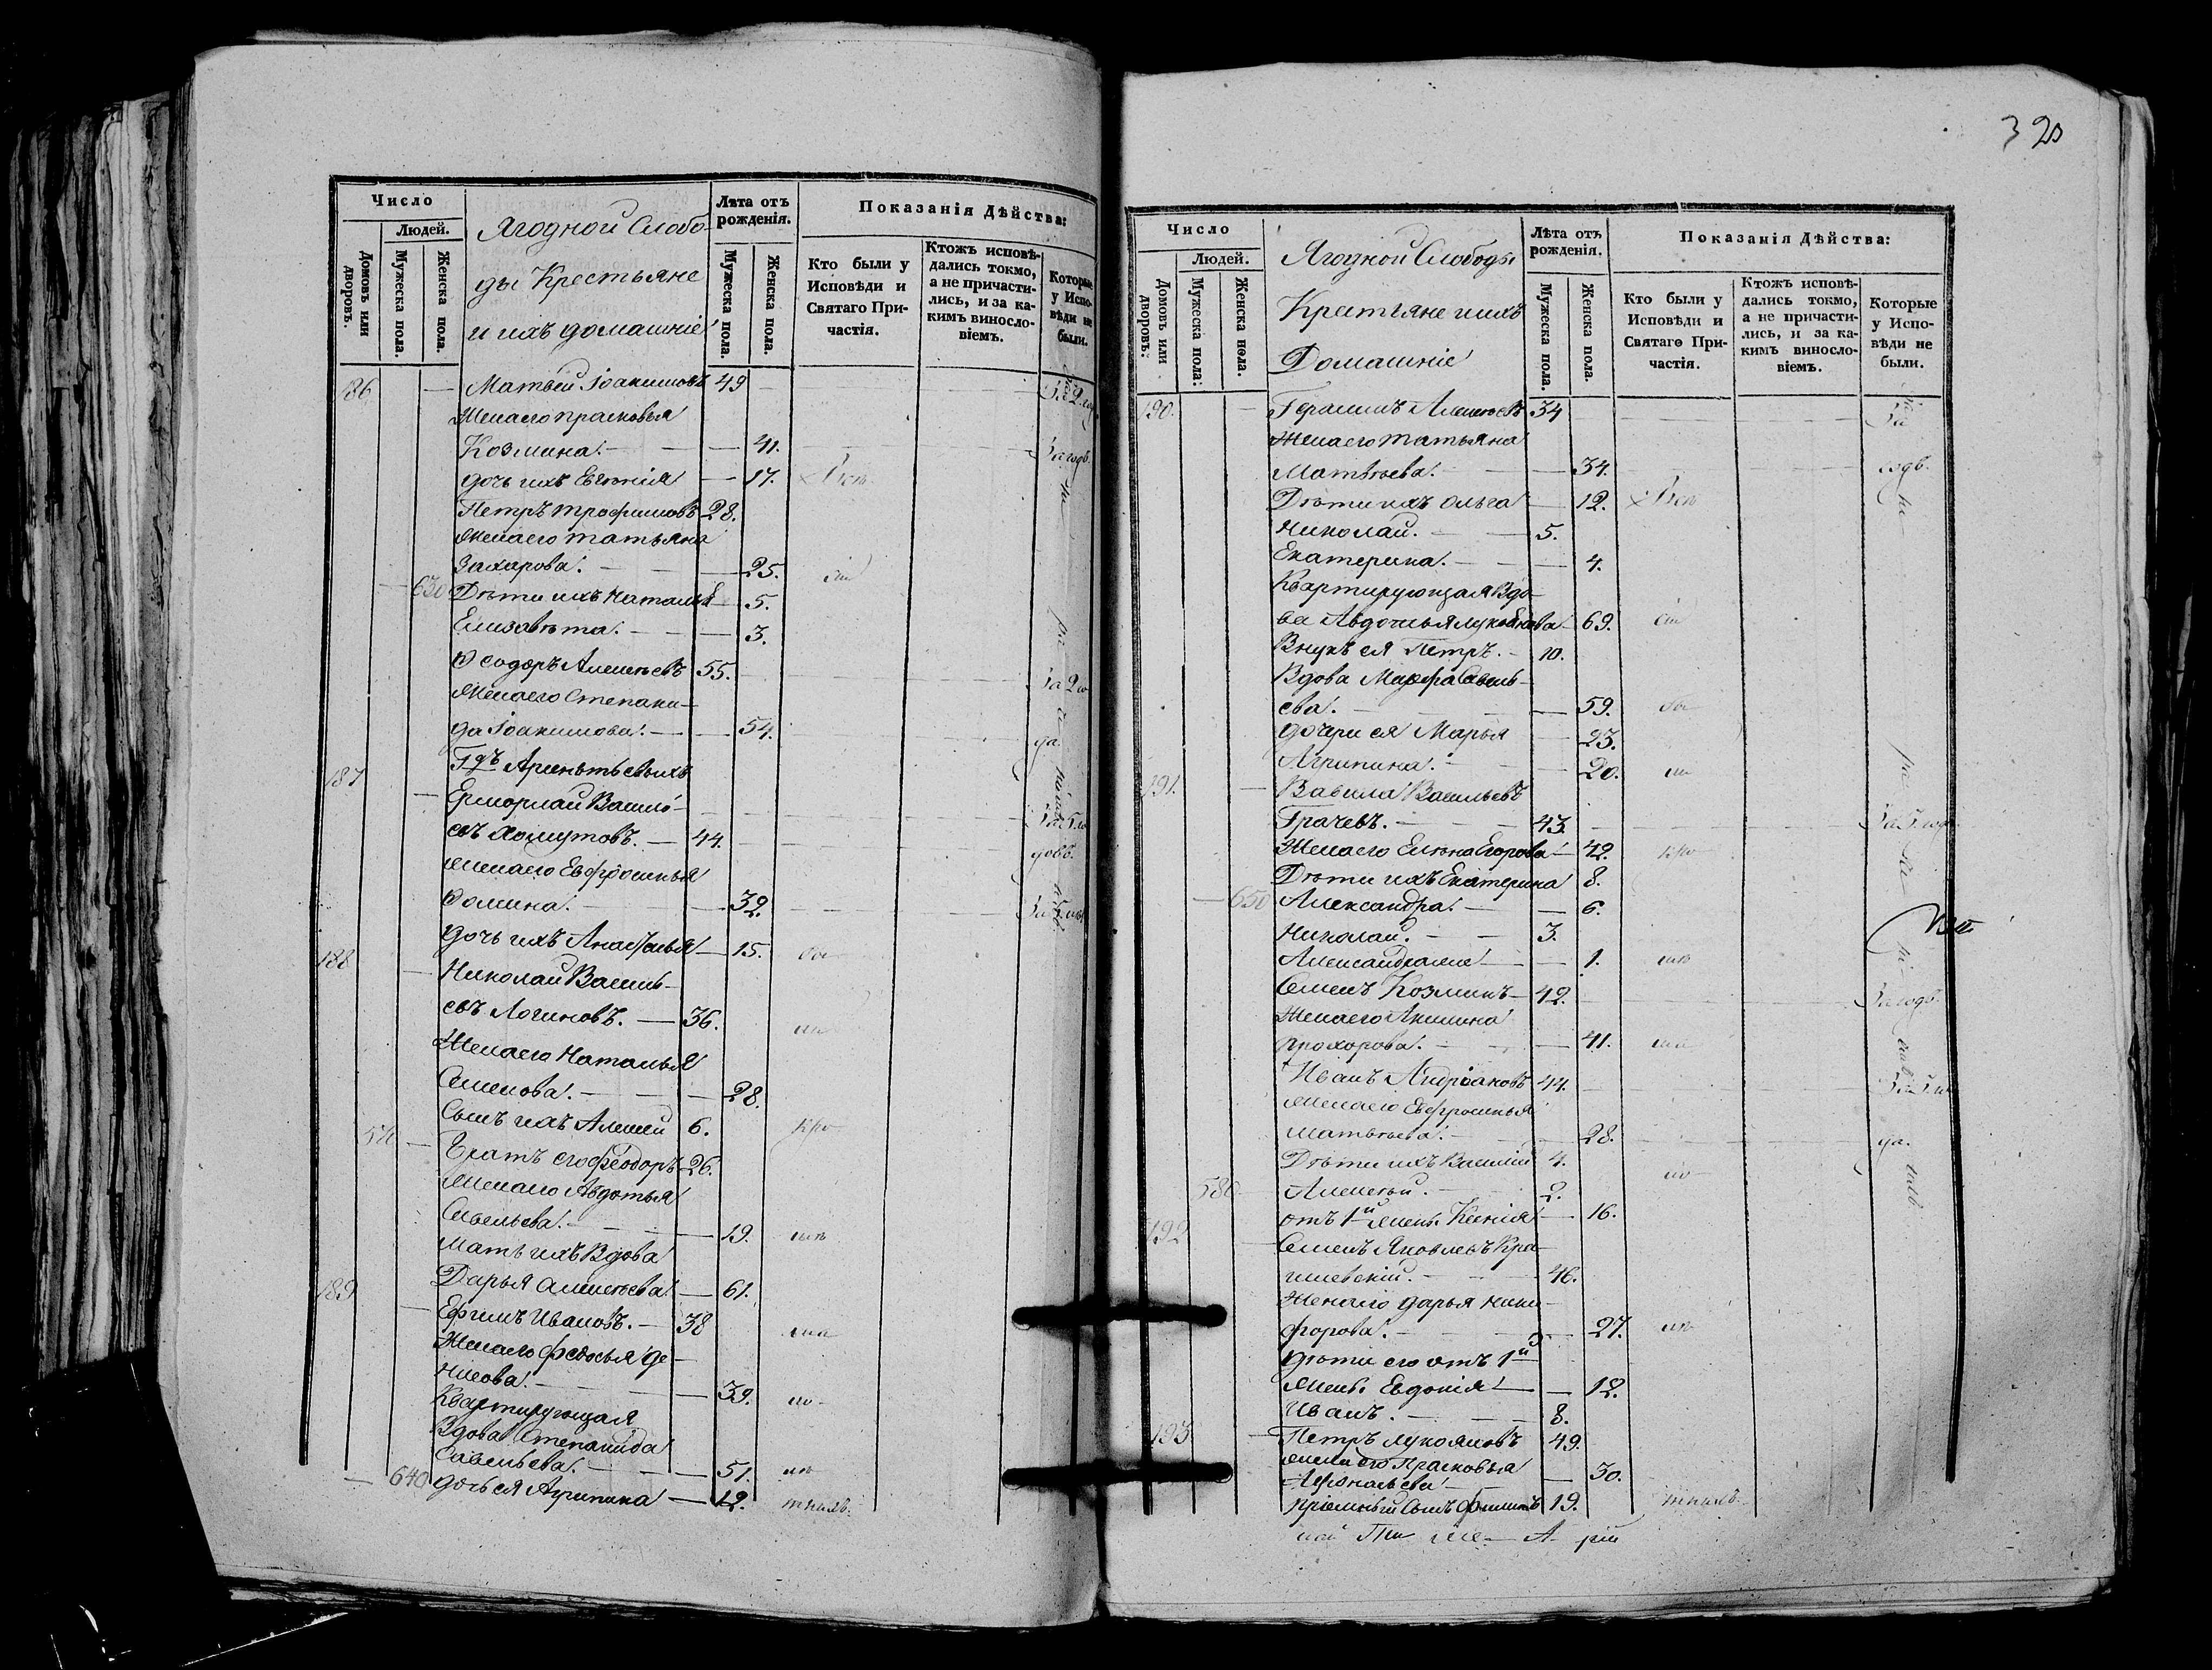 320
Число
Людей.
Домовъ или дворовъ.
Мужеска пола.
Женска пола.
Ягодной Слобо-
ды Крестьяне
и ихъ домашніе
Лѣта отъ рожденія.
Мужеска пола.
Женска пола.
Показанія Дѣйства:
Кто были у Исповѣди и Святаго Причастія.
Ктожъ исповѣдались токмо, а не причастились, и за какимъ винословіемъ.
Которые у Исповѣди не были.
186 — Матвей Іоакимовъ 49 — За 2 го
Жена его Прасковья
Козмина. — 41. За годъ.
дочь ихъ Евгенія — 17.
Петръ Трофимовъ 28.
Жена его Татьяна
Захарова. — 25.
— 630 Дѣти ихъ Наталья — 5.
Елизавета. — 3.
Ѳеодоръ Алексѣевъ 55. За 2 го
Жена его Степани-
да Іоакимова. — 54. да
187 Гдъ Арсеньтьевыхъ
— Ермолай Василь-
евъ Хомутовъ. — 44. За 5 го
довъ.
Жена его Евфросинья
Ѳомина. — 32.
дочь ихъ Анастасья — 15.
188 — Николай Василь-
евъ Логиновъ. — 36.
Жена его Наталья
Семенова. — 28.
Сынъ ихъ Алексей 6.
Братъ его Феодоръ 26.
Жена его Авдотья
Савельева. — 19.
Мать ихъ Вдова
Дарья Алексѣева — 61.
189 — Ефимъ Ивановъ. — 38
Жена его Федосья Де-
нисова. — 39.
Квартирующая
Вдова Степанида
Савельева. — 51.
— 640 дочь ея Агрипина — 12.
Число
Людей.
Домовъ или дворовъ.
Мужеска пола.
Женска пола.
Ягодной Слободы
Крестьяне и ихъ
Домашніе
Лѣта отъ рожденія.
Мужеска пола.
Женска пола.
Показанія Дѣйства:
Кто были у Исповѣди и Святаго Причастія.
Ктожъ исповѣдались токмо, а не причастились, и за какимъ винословіемъ.
Которые у Исповѣди не были.
190. — Герасимъ Алексѣевъ 34 За
Жена его Татьяна
Матвѣева. — 34. годъ.
Дѣти ихъ Ольга — 12.
Николай. — 5.
Екатерина. — 4.
Квартирующая Вдо-
ва Авдотья Лукоянова 69.
Внукъ ея Петръ. — 10.
Вдова Марфа Савель-
ева. — 59.
дочери ея Марья — 23.
Агрипина. — 20.
191. — Вавила Васильевъ
Грачевъ. — 43. За 5 год
Жена его Елена Егорова — 42.
Дѣти ихъ Екатерина 8.
— 650 Александра. — 6.
Николай. — 3.
Александра — 1.
Семенъ Козминъ — 42. За годъ.
Жена его Акилина
Прохорова. — 41.
Иванъ Андріановъ 44. За 5 го
Жена его Евфросинья
Матвѣева. — 28. да.
Дѣти ихъ Василий 4.
580 Алексѣй. — 2.
отъ 1й жены Ксенія — 16.
192 — Семенъ Яковлевъ Кра-
шевскій. — 46.
Жена его Дарья Ники-
форова. — 27.
Дѣти его отъ 1й
жены Евдокія — 12.
Иванъ. — 8.
193 — Петръ Лукояновъ 49.
жена его Прасковья
Афонасьева — 30.
Пріемный Сынъ Филипъ 19.